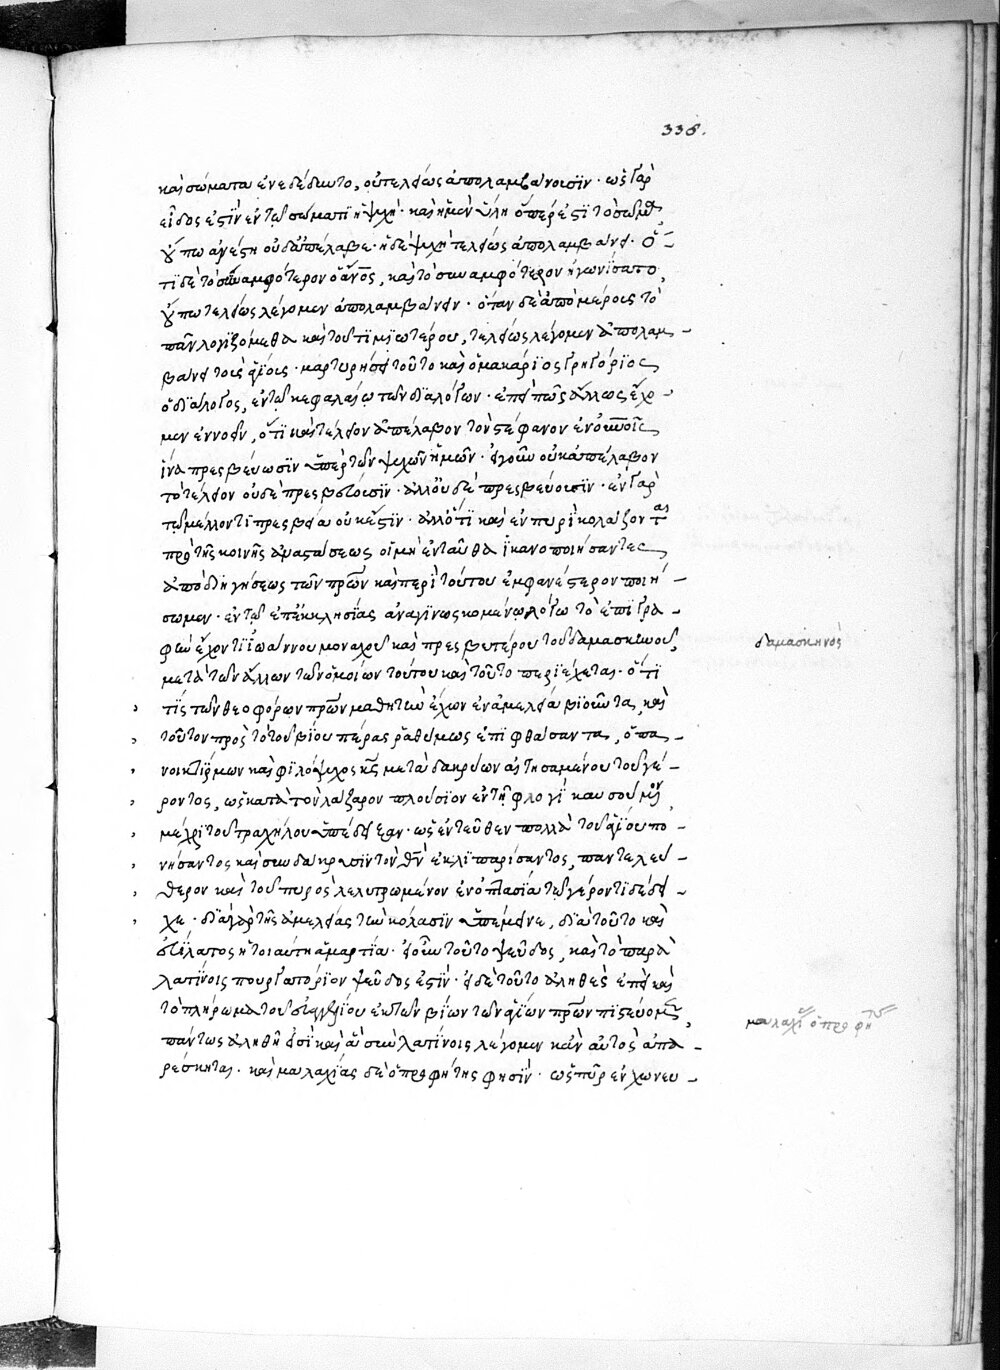 338.
καὶ σώματα ἐνεδέδυντο, οὐ τελείως ἀπολαμβάνουσιν· ὡς γὰρ
εἶδος ἐστὶν ἐν τῷ σώματι ἡ ψυχὴ· καὶ ἡ μὲν ὕλη ὅπερ ἐστὶ τὸ σῶμα
οὔπω ἀνέστη οὐδ' ἀπέλαβε· ἡ δὲ ψυχὴ τελείως ἀπολαμβάνει· ὅ-
τι δὲ τὸ συναμφότερον ὁ ἄνος, καὶ τὸ συναμφότερον ἠγωνίσατο,
οὔπω τελείως λέγομεν ἀπολαμβάνειν· ὅταν δὲ ἀπὸ μέρους τὸ
πᾶν λογιζόμεθα καὶ τοῦ τιμιωτέρου, τελείως λέγομεν ἀπολαμ-
βάνειν τοὺς ἁγίους· μαρτυρήσει τοῦτο καὶ ὁ μακάριος Γρηγόριος
ὁ διάλογος, ἐν τῷ κεφαλαίῳ τῶν διαλόγων· ἐπεὶ πῶς ἄλλως ἔχο-
μεν ἐννοεῖν, ὅτι καὶ τέλειον ἀπέλαβον τὸν στέφανον ἐν οὐνοῖς
ἵνα πρεσβεύωσιν ὑπὲρ τῶν ψυχῶν ἡμῶν· εἰ γοῦν οὐκ ἀπέλαβον
τὸ τέλειον οὐδὲ πρεσβεύουσιν· ἀλλ' οὐδὲ πρεσβεύουσιν· ἐν γὰρ
τῷ μέλλοντι πρεσβεία οὐκ ἔστιν· ἀλλ' ὅτι καὶ ἐν πυρὶ κολάζονται
πρὸ τῆς κοινῆς ἀναστάσεως οἱ μὴ ἐνταῦθα ἱκανοποιήσαντες
ἀπὸ διηγήσεως τῶν πρων καὶ περὶ τούτου ἐμφανέστερον ποιή-
σωμεν· ἐν τῷ ἐπ' ἐκκλησίας ἀναγινωσκομένῳ λόγῳ τὸ ἐπιγρα-
φὴν ἔχοντι Ἰωάννου μοναχοῦ καὶ πρεσβυτέρου τοῦ δαμασκηνοῦ,
δαμασκηνὸς
μετὰ τῶν ἄλλων τῶν ὁμοίων τούτου καὶ τοῦτο περιέχεται· ὅτι
τὶς τῶν θεοφόρων πρων μαθητὴν ἔχων ἐν ἀμελείᾳ βιοῦντα, καὶ
τοῦτον πρὸς τὸ τοῦ βίου πέρας ῥαθύμως ἐπιφθάσαντα, ὁ πα-
νοικτίρμων καὶ φιλόψυχος κς μετὰ δακρύων αἰτησαμένου τοῦ γέ-
ροντος, ὡς κατὰ τὸν λάζαρον πλούσιον ἐν τῇ φλογὶ καυσούμενον
μέχρι τοῦ τραχήλου ὑπέδειξεν· ὡς ἐντεῦθεν πολλὰ τοῦ ἁγίου πο-
νήσαντος καὶ σὺν δάκρυσιν τὸν θν ἐκλιπαρίσαντος, παντελεύ-
θερον καὶ τοῦ πυρὸς λελυτρωμένον ἐν ὀπτασίᾳ τῷ γέροντι δέδει-
χε· διὰ γὰρ τῆς ἀμελείας τὴν κόλασιν ὑπέμεινε, διὰ τοῦτο καὶ
εὐΐλατος ἡ τοιαύτη ἁμαρτία· εἰ οὖν τοῦτο ψεῦδος, καὶ τὸ παρὰ
λατίνοις πουργατόριον ψεῦδος ἐστὶν· εἰ δὲ τοῦτο ἀληθὲς ἐπεὶ καὶ
τὸ πλήρωμα τοῦ εὐαγγελίου ἐκ τῶν βίων τῶν ἁγίων πρων πιστεύομεν,
μαλαχίου τοῦ προφήτου
πάντως ἀληθῆ εἰσὶ καὶ ἃ σὺν λατίνοις λέγομεν κἂν αὐτὸς ἀπα-
ρέσκηται· καὶ μαλαχίας δὲ ὁ προφήτης φησὶν· ὡς πῦρ ἐν χωνευ-